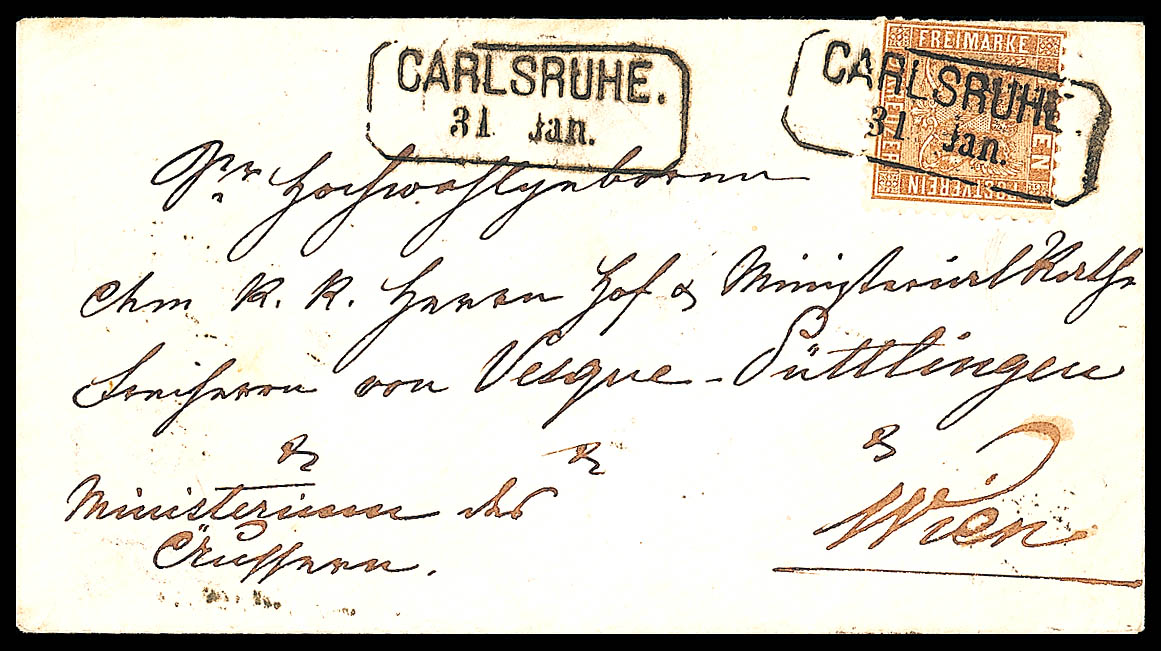 CARLSRUHE.
31 Jan.
CARLSRUHE
31 Jan.
FREIMARKE
POSTVEREIN
Sr Hochwohlgeboren
dem K. K. Herrn Hof & Ministerial Rathe
Freiherrn von Vesque-Püttlingen
Ministerium des
Äussern.
Wien